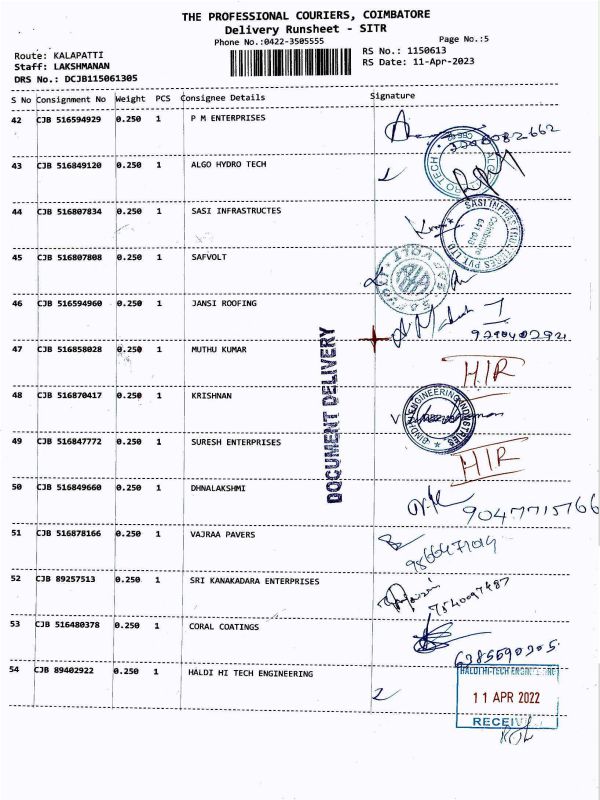 THE PROFESSIONAL COURIERS, COIMBATORE
Delivery Runsheet - SITR
Phone No.:0422-3505555
Page No.:5
Route: KALAPATTI
RS No.: 1150613
Staff: LAKSHMANAN
RS Date: 11-Apr-2023
DRS No.: DCJB115061305
S No Consignment No Weight PCS Consignee Details Signature
42 CJB 516594929 0.250 1 P M ENTERPRISES
43 CJB 516849120 0.250 1 ALGO HYDRO TECH
44 CJB 516807834 0.250 1 SASI INFRASTRUCTES
SASI INFRASTRUCTURES PVT LTD
Coimbatore
45 CJB 516807808 0.250 1 SAFVOLT
46 CJB 516594960 0.250 1 JANSI ROOFING
47 CJB 516858028 0.250 1 MUTHU KUMAR
HIR
DOCUMENT DELIVERY
48 CJB 516870417 0.250 1 KRISHNAN
ENGINEERING INDUSTRIES
49 CJB 516847772 0.250 1 SURESH ENTERPRISES
HIR
50 CJB 516849660 0.250 1 DHNALAKSHMI
9047715766
51 CJB 516878166 0.250 1 VAJRAA PAVERS
52 CJB 89257513 0.250 1 SRI KANAKADARA ENTERPRISES
53 CJB 516480378 0.250 1 CORAL COATINGS
54 CJB 89402922 0.250 1 HALDI HI TECH ENGINEERING
HALDI HI-TECH ENGINEERING
11 APR 2022
RECEIVED